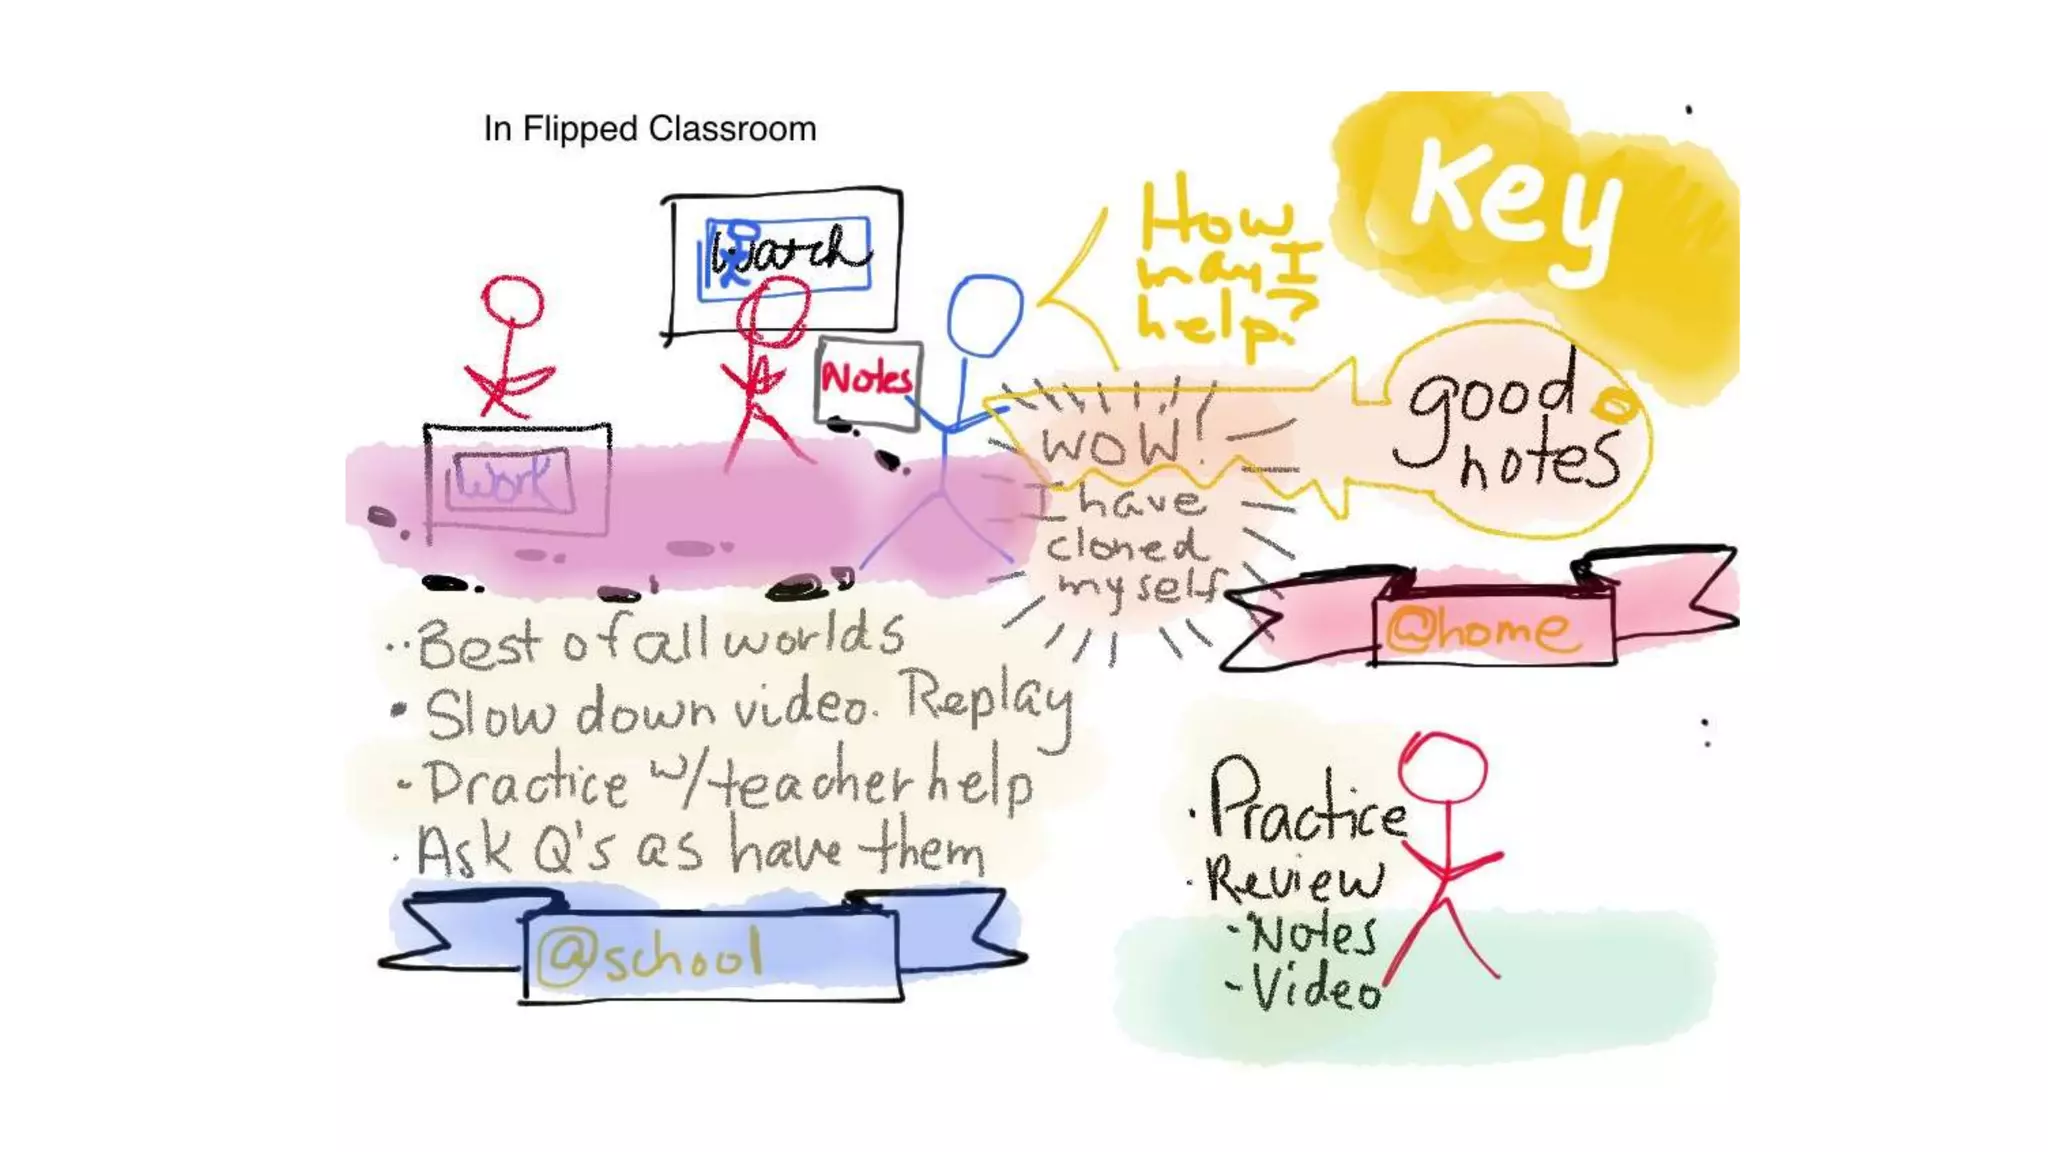 In Flipped Classroom
Key
How
may I
help?
Watch
Notes
good
notes
Work
WOW!
I have
cloned
myself
@home
Best of all worlds
Slow down video. Replay
Practice w/ teacher help
Ask Q's as have them
@school
Practice
Review
- Notes
- Video